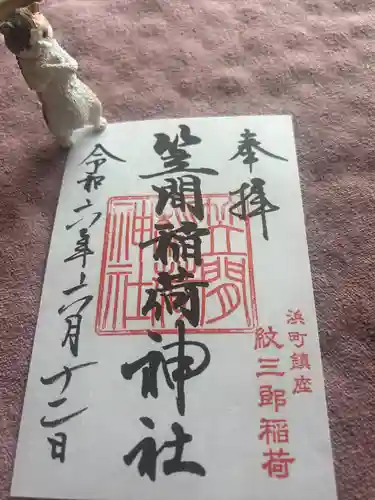 奉拝
笠間稲荷神社
笠間稲荷神社
浜町鎮座
紋三郎稲荷
令和六年十二月十二日